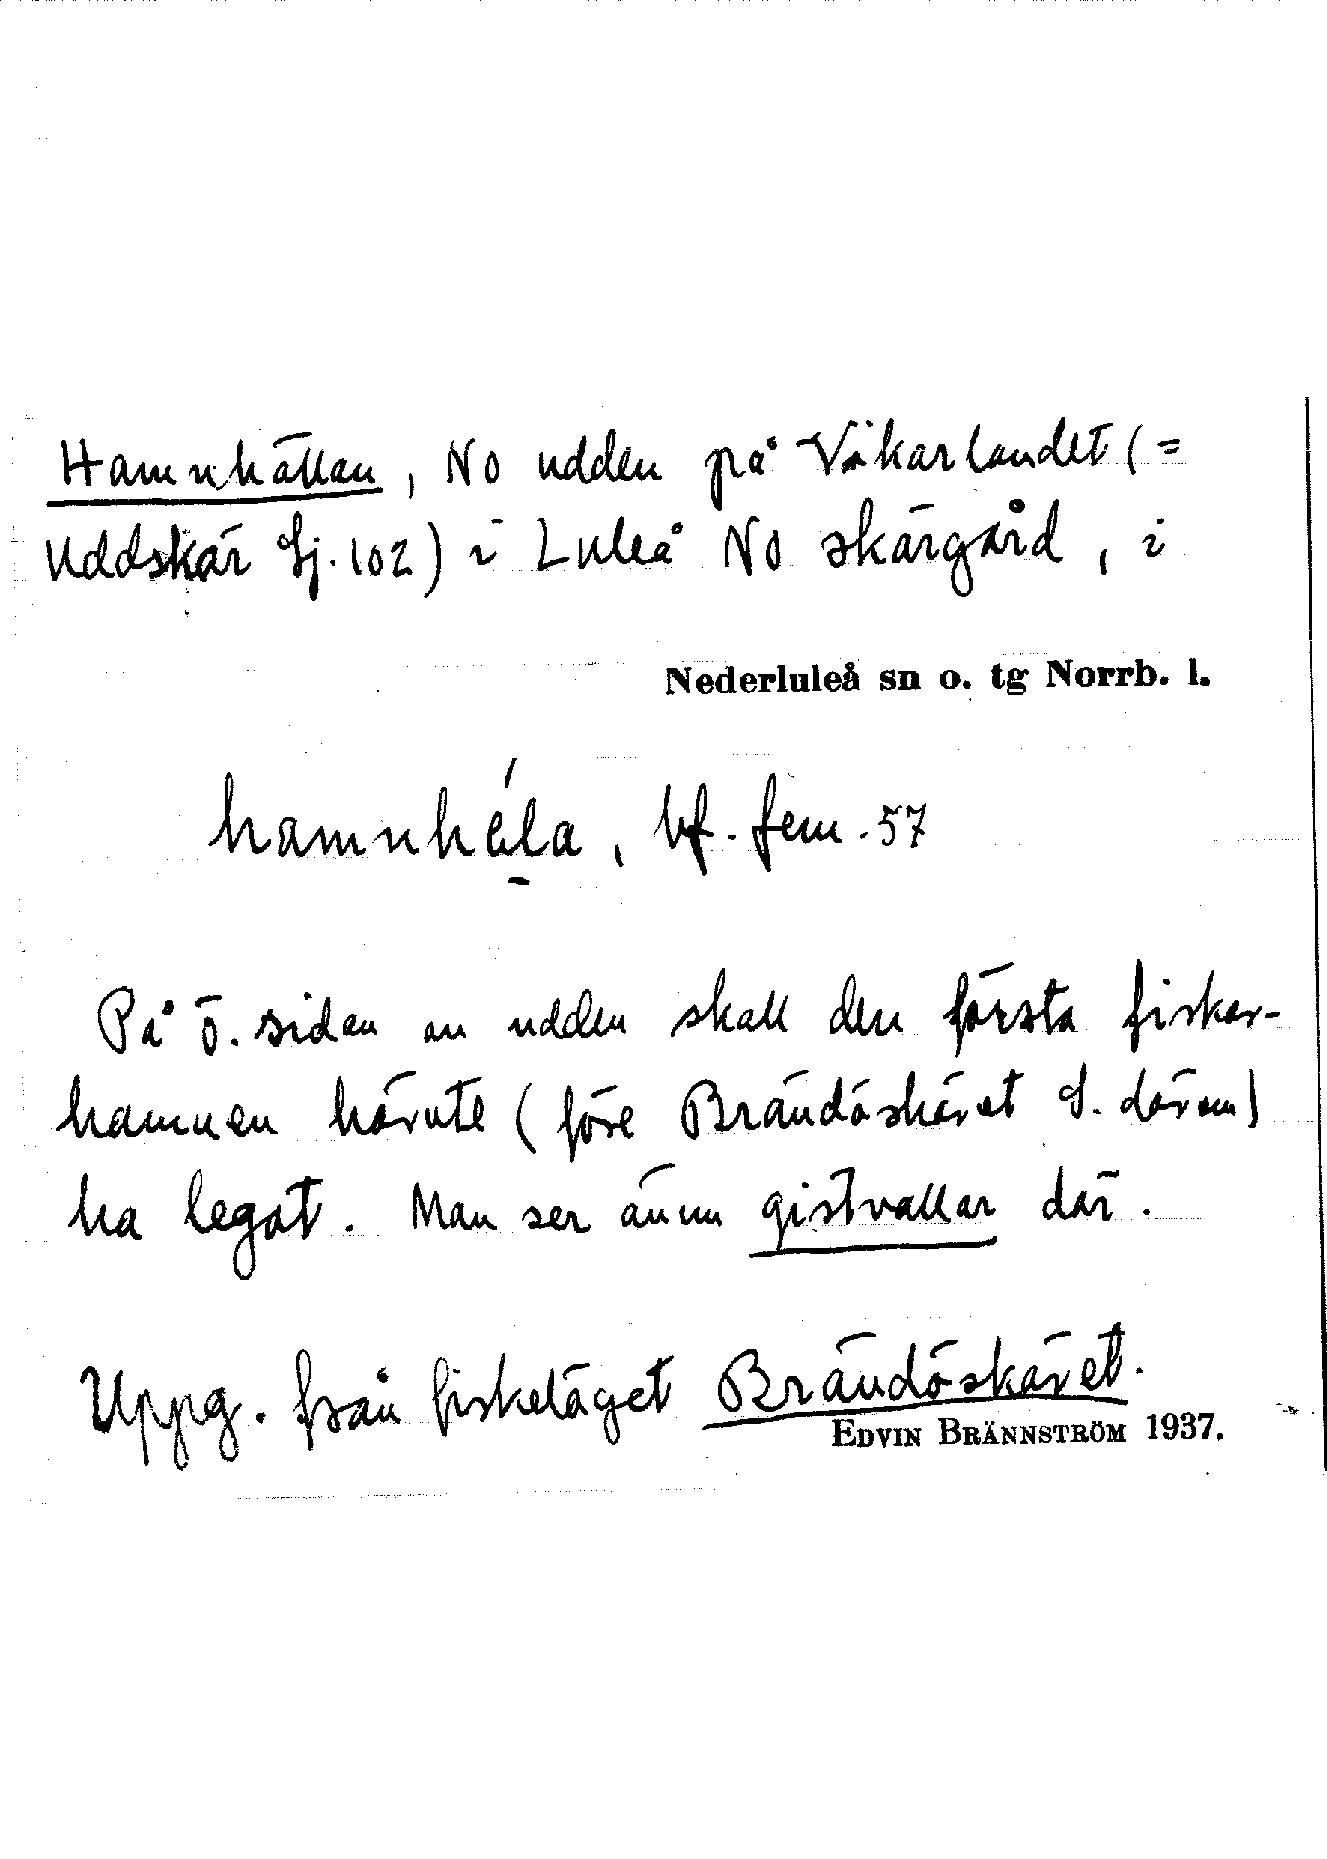 Hamnhällan, NO udden på Vikarlandet (=
Uddskär Sj. 102) i Luleå NO skärgård, i
Nederluleå sn o. tg Norrb. l.
hamnhéla, bf. fem. 57
På ö. sidan au udden skall den första fiskar-
hamnen härute (före Brändöskäret S. därom)
ha legat. Man ser ännu gistvallar där.
Uppg. från fiskeläget Brändöskäret.
EDVIN BRÄNNSTRÖM 1937.